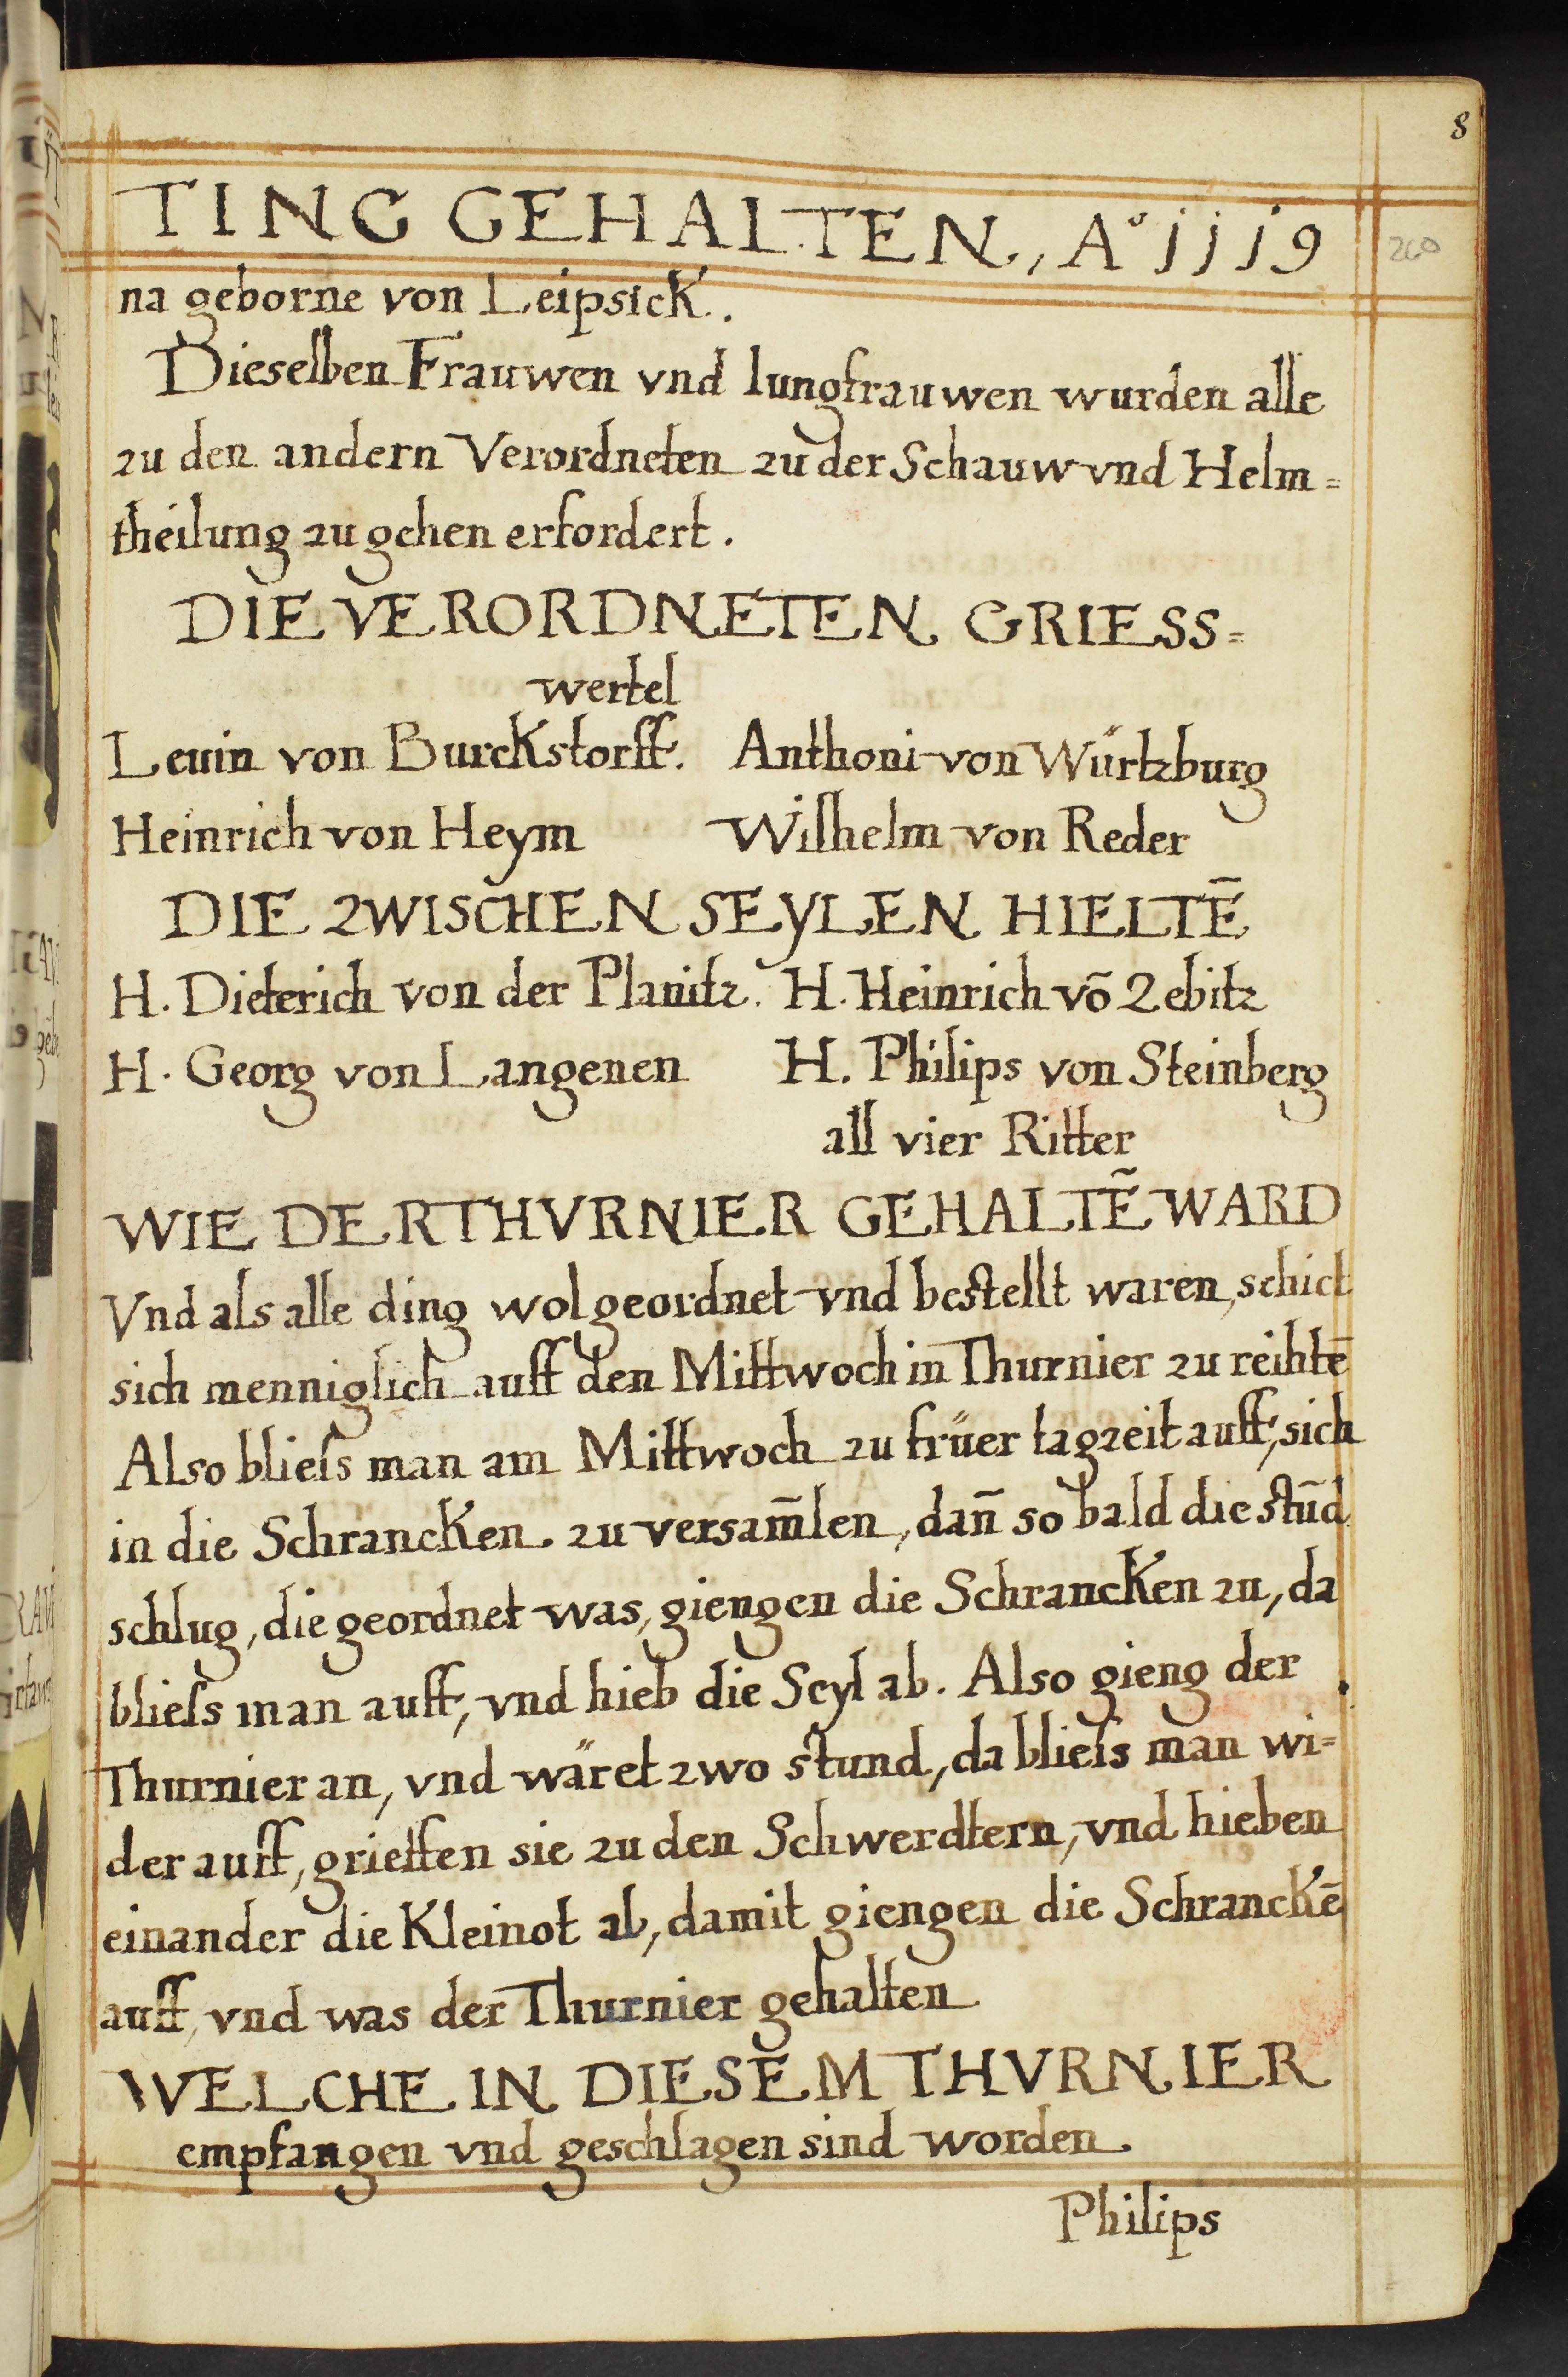 8
TING GEHALTEN, A° jjj9
260
na geborne von Leipsick.
Dieselben Frauwen vnd Iungfrauwen wurden alle
zu den andern Verordneten zu der Schauw vnd Helm=
theilung zu gehen erfordert.
DIE VERORDNETEN GRIESS=
wertel
Leuin von Burckstorff. Anthoni von Würtzburg
Heinrich von Heym Wilhelm von Reder
DIE ZWISCHEN SEYLEN HIELTĒ
H. Dieterich von der Planitz. H. Heinrich võ Zebitz
H. Georg von Langenen H. Philips von Steinberg
all vier Ritter
WIE DER THVRNIER GEHALTẼ WARD
Vnd als alle ding wol geordnet vnd bestellt waren, schict
sich menniglich auff den Mittwoch in Thurnier zu reihtē
Also bliess man am Mittwoch zu früer tagzeit auff, sich
in die Schrancken zu versam̄len, dan̄ so bald die stūd
schlug, die geordnet was, giengen die Schrancken zu, da
bliess man auff, vnd hieb die Seyl ab. Also gieng der
Thurnier an, vnd wäret zwo stund, da bliess man wi=
der auff, grieffen sie zu den Schwerdtern, vnd hieben
einander die Kleinot ab, damit giengen die Schranckē
auff, vnd was der Thurnier gehalten
WELCHE IN DIESEM THVRNIER
empfangen vnd geschlagen sind worden.
Philips